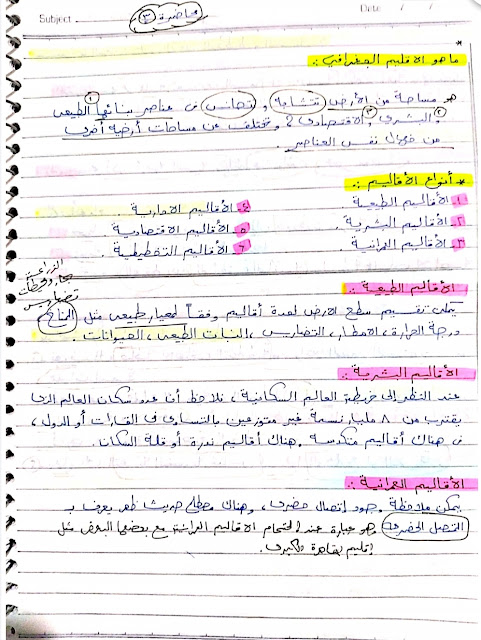 Subject
Date / /
محاضرة ٣
* ما هو الاقليم الجغرافي :.
هو مساحة من الأرض متشابة و تجانس فى عناصر بنائها الطبيعى ١
٢ البشرى ٣ والاقتصادى ؟ وتختلف عن مساحات أرضية أخرى
من خلال نفس العناصر .
* أنواع الأقاليم :.
١. الأقاليم الطبيعية .
٤. الأقاليم الادارية .
٢. الأقاليم البشرية .
٥. الأقاليم الاقتصادية
٣. الأقاليم العمرانية
٦. الأقاليم التخطيطية .
تضاريس
الأقاليم الطبيعية :.
يمكن تقسيم سطح الارض لعدة أقاليم وفقاً لمعيار طبيعى مثل المناخ
ودرجة الحرارة ، الامطار ، التضاريس ، النبات الطبيعى ، الحيوانات .
الأقاليم البشرية :.
عند النظر إلى خريطة العالم السكانية ، نلاحظ أن عدد سكان العالم الذى
يقترب من ٨ مليار نسمة غير متوزعين بالتساوى فى القارات أو الدول ،
فى هناك أقاليم متكدسة وهناك أقاليم ندرة أو قلة السكان .
الأقاليم العمرانية :.
يمكن ملاحظة وجود إتصال حضرى ، وهناك مصطلح حديث ظهر يعرف بـ
المتصل الحضرى وهو عبارة عند التحام الاقاليم العمرانية مع بعضها البعض مثل
إقليم القاهرة الكبرى .